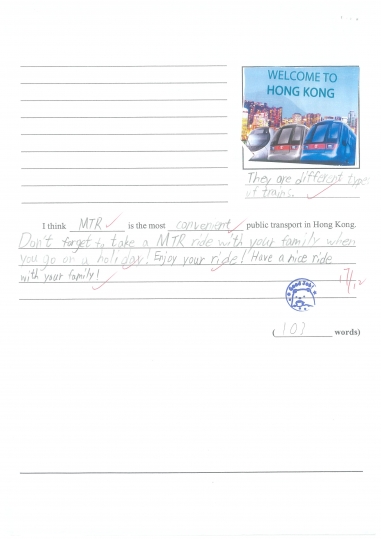 WELCOME TO
HONG KONG
They are different types
of trains.
I think MTR is the most convenient public transport in Hong Kong.
Don't forget to take a MTR ride with your family when
you go on a holiday! Enjoy your ride! Have a nice ride
with your family!
Good Job!
(103 words)